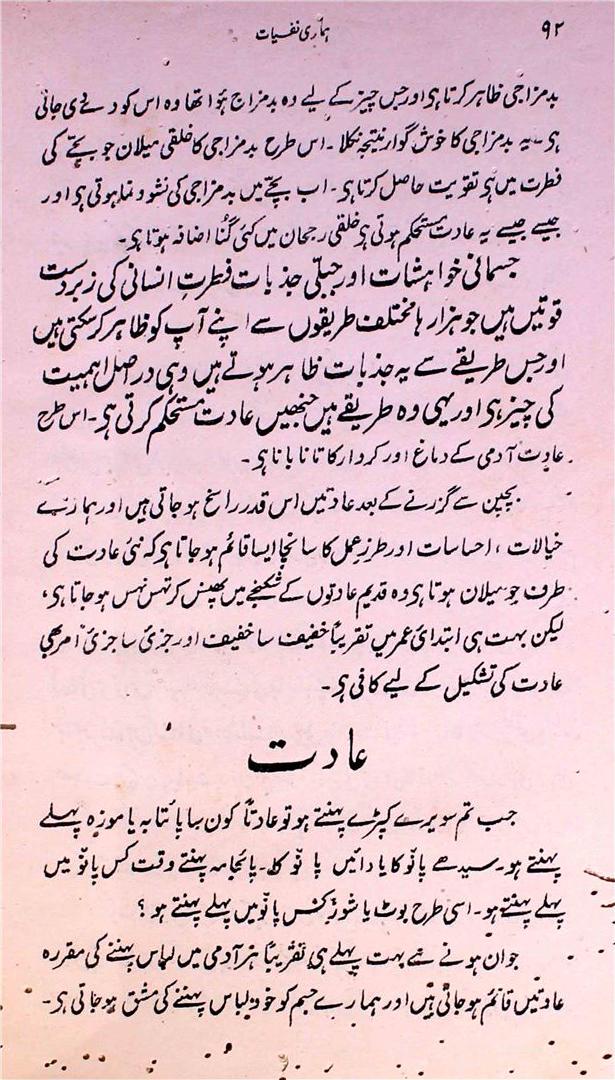 ۹۲
ہماری نفسیات
بدمزاجی ظاہر کرتا ہی اور جس چیز کے لیے وہ بدمزاج ہوا تھا وہ اس کو دے دی جاتی
ہی۔ یہ بدمزاجی کا خوش گوار نتیجہ نکلا۔ اس طرح بدمزاجی کا خلقی میلان جو بچّے کی
فطرت میں ہی تقویت حاصل کرتا ہی۔ اب بچّے میں بدمزاجی کی نشو و نما ہوتی ہی اور
جیسے جیسے یہ عادت مستحکم ہوتی ہی خلقی رجحان میں کئی گُنا اضافہ ہوتا ہی۔
جسمانی خواہشات اور جبلّی جذبات فطرتِ انسانی کی زبردست
قوتیں ہیں جو ہزارہا مختلف طریقوں سے اپنے آپ کو ظاہر کرسکتی ہیں
اور جس طریقے سے یہ جذبات ظاہر ہوتے ہیں وہی دراصل اہمیت
کی چیز ہی اور یہی وہ طریقے ہیں جنھیں عادت مستحکم کرتی ہی۔ اس طرح
عادت آدمی کے دماغ اور کردار کا تانا بانا ہی۔
بچپن سے گزرنے کے بعد عادتیں اس قدر راسخ ہو جاتی ہیں اور ہمارے
خیالات ، احساسات اور طرزِ عمل کا سانچا ایسا قائم ہو جاتا ہی کہ نئی عادت کی
طرف جو میلان ہوتا ہی وہ قدیم عادتوں کے شکنجے میں پھنس کر تہس نہس ہو جاتا ہی،
لیکن بہت ہی ابتدائی عمر میں تقریباً خفیف سا خفیف اور جزئی سا جزئی امر بھی
عادت کی تشکیل کے لیے کافی ہی۔
عادت
جب تم سویرے کپڑے پہنتے ہو تو عادتاً کون سا پائتابہ یا موزہ پہلے
پہنتے ہو۔ سیدھے پانْو کا یا دائیں پانْو کا۔ پائجامہ پہنتے وقت کس پانْو میں
پہلے پہنتے ہو۔ اسی طرح بوٹ یا شوز کِس پانْو میں پہلے پہنتے ہو ؟
جوان ہونے سے بہت پہلے ہی تقریباً ہر آدمی میں لباس پہننے کی مقررہ
عادتیں قائم ہو جاتی ہیں اور ہمارے جسم کو خود لباس پہننے کی مشق ہو جاتی ہی۔